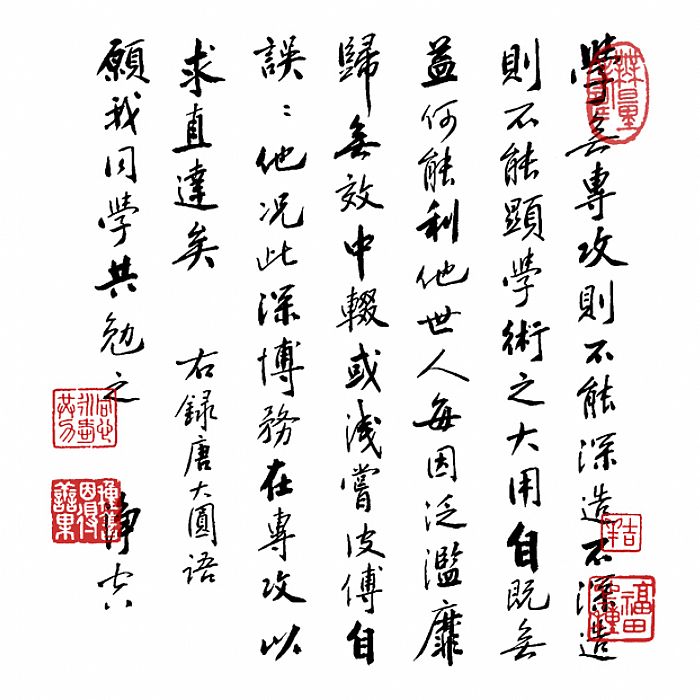 學無專攻則不能深造不深造
則不能顯學術之大用自既無
益何能利他世人每因泛濫靡
歸無效中輟或淺嘗皮傅自
誤：他況此深博務在專攻以
求直達矣　右錄唐大圓語
願我同學共勉之　淨空
福田